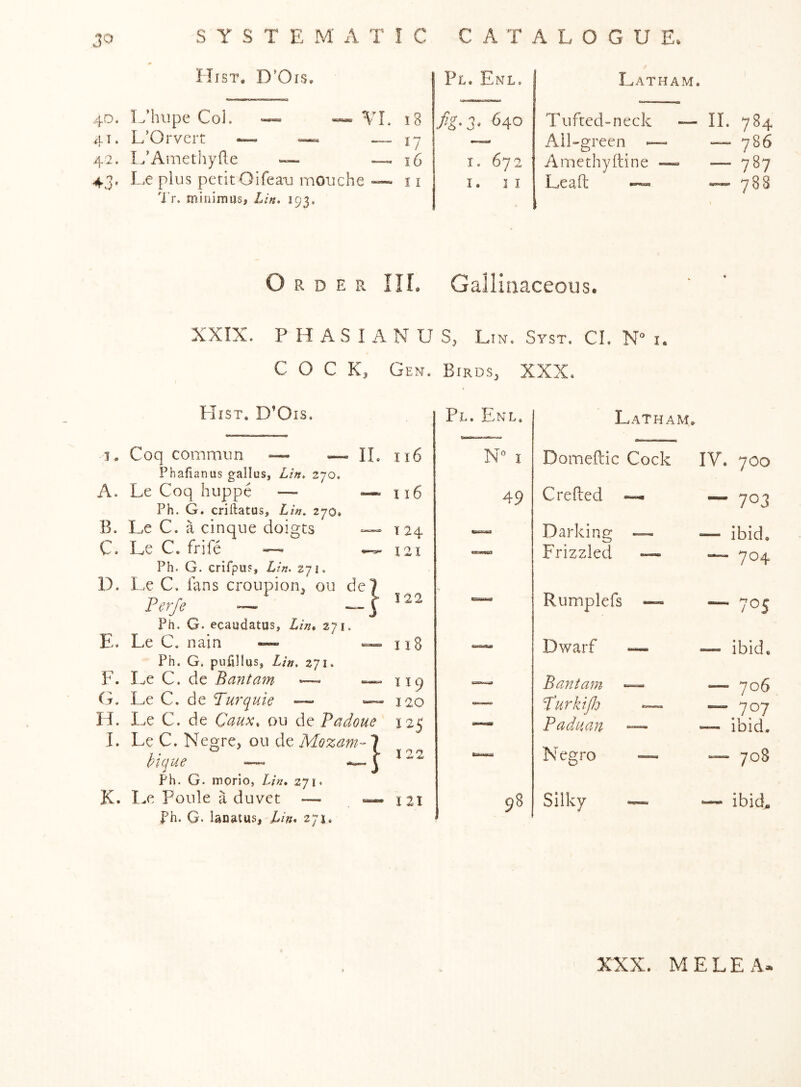 30 SYSTEMATIC CATALOGUE.
Hist. D'Ois. Pl. Enl. Latham.
40. L'hupe Col. — — VI. 18 fig. 3. 640 Tufted-neck — II. 784
41. L'Orvert — — — 17 — All-green — — 786
42. L'Amethyſte — — 16 1. 672 Amethyſtine — — 787
43. Le plus petit Oiſeau mouche — 11 1. 11 Leaſt — — 788
Tr. minimus, Lin. 193.
Order III. Gallinaceous.
XXIX. PHASIANUS, Lin. Syst. Cl. N° 1.
COCK, Gen. Birds, XXX.
Hist. D'Ois. Pl. Enl. Latham.
1. Coq commun — — II. 116 N° 1 Domeſtic Cock IV. 700
Phaſianus gallus, Lin. 270.
A. Le Coq huppé — — 116 49 Creſted — — 703
Ph. G. criſtatus, Lin. 270.
B. Le C. à cinque doigts — 124 — Darking — — ibid.
C. Le C. friſé — — 121 — Frizzled — — 704
Ph. G. criſpus, Lin. 271.
D. Le C. ſans croupion, ou de
Perſe — — } 122 — Rumpleſs — — 705
Ph. G. ecaudatus, Lin. 271.
E. Le C. nain — — 118 — Dwarf — — ibid.
Ph. G. puſillus, Lin. 271.
F. Le C. de Bantam — — 119 — Bantam — — 706
G. Le C. de Turquie — — 120 — Turkiſh — — 707
H. Le C. de Caux, ou de Padoue 125 — Paduan — — ibid.
I. Le C. Negre, ou de Mozam-
bique — — } 122 — Negro — — 708
Ph. G. morio, Lin. 271.
K. Le Poule à duvet — — 121 98 Silky — — ibid.
Ph. G. lanatus, Lin. 271.
XXX. MELEA-